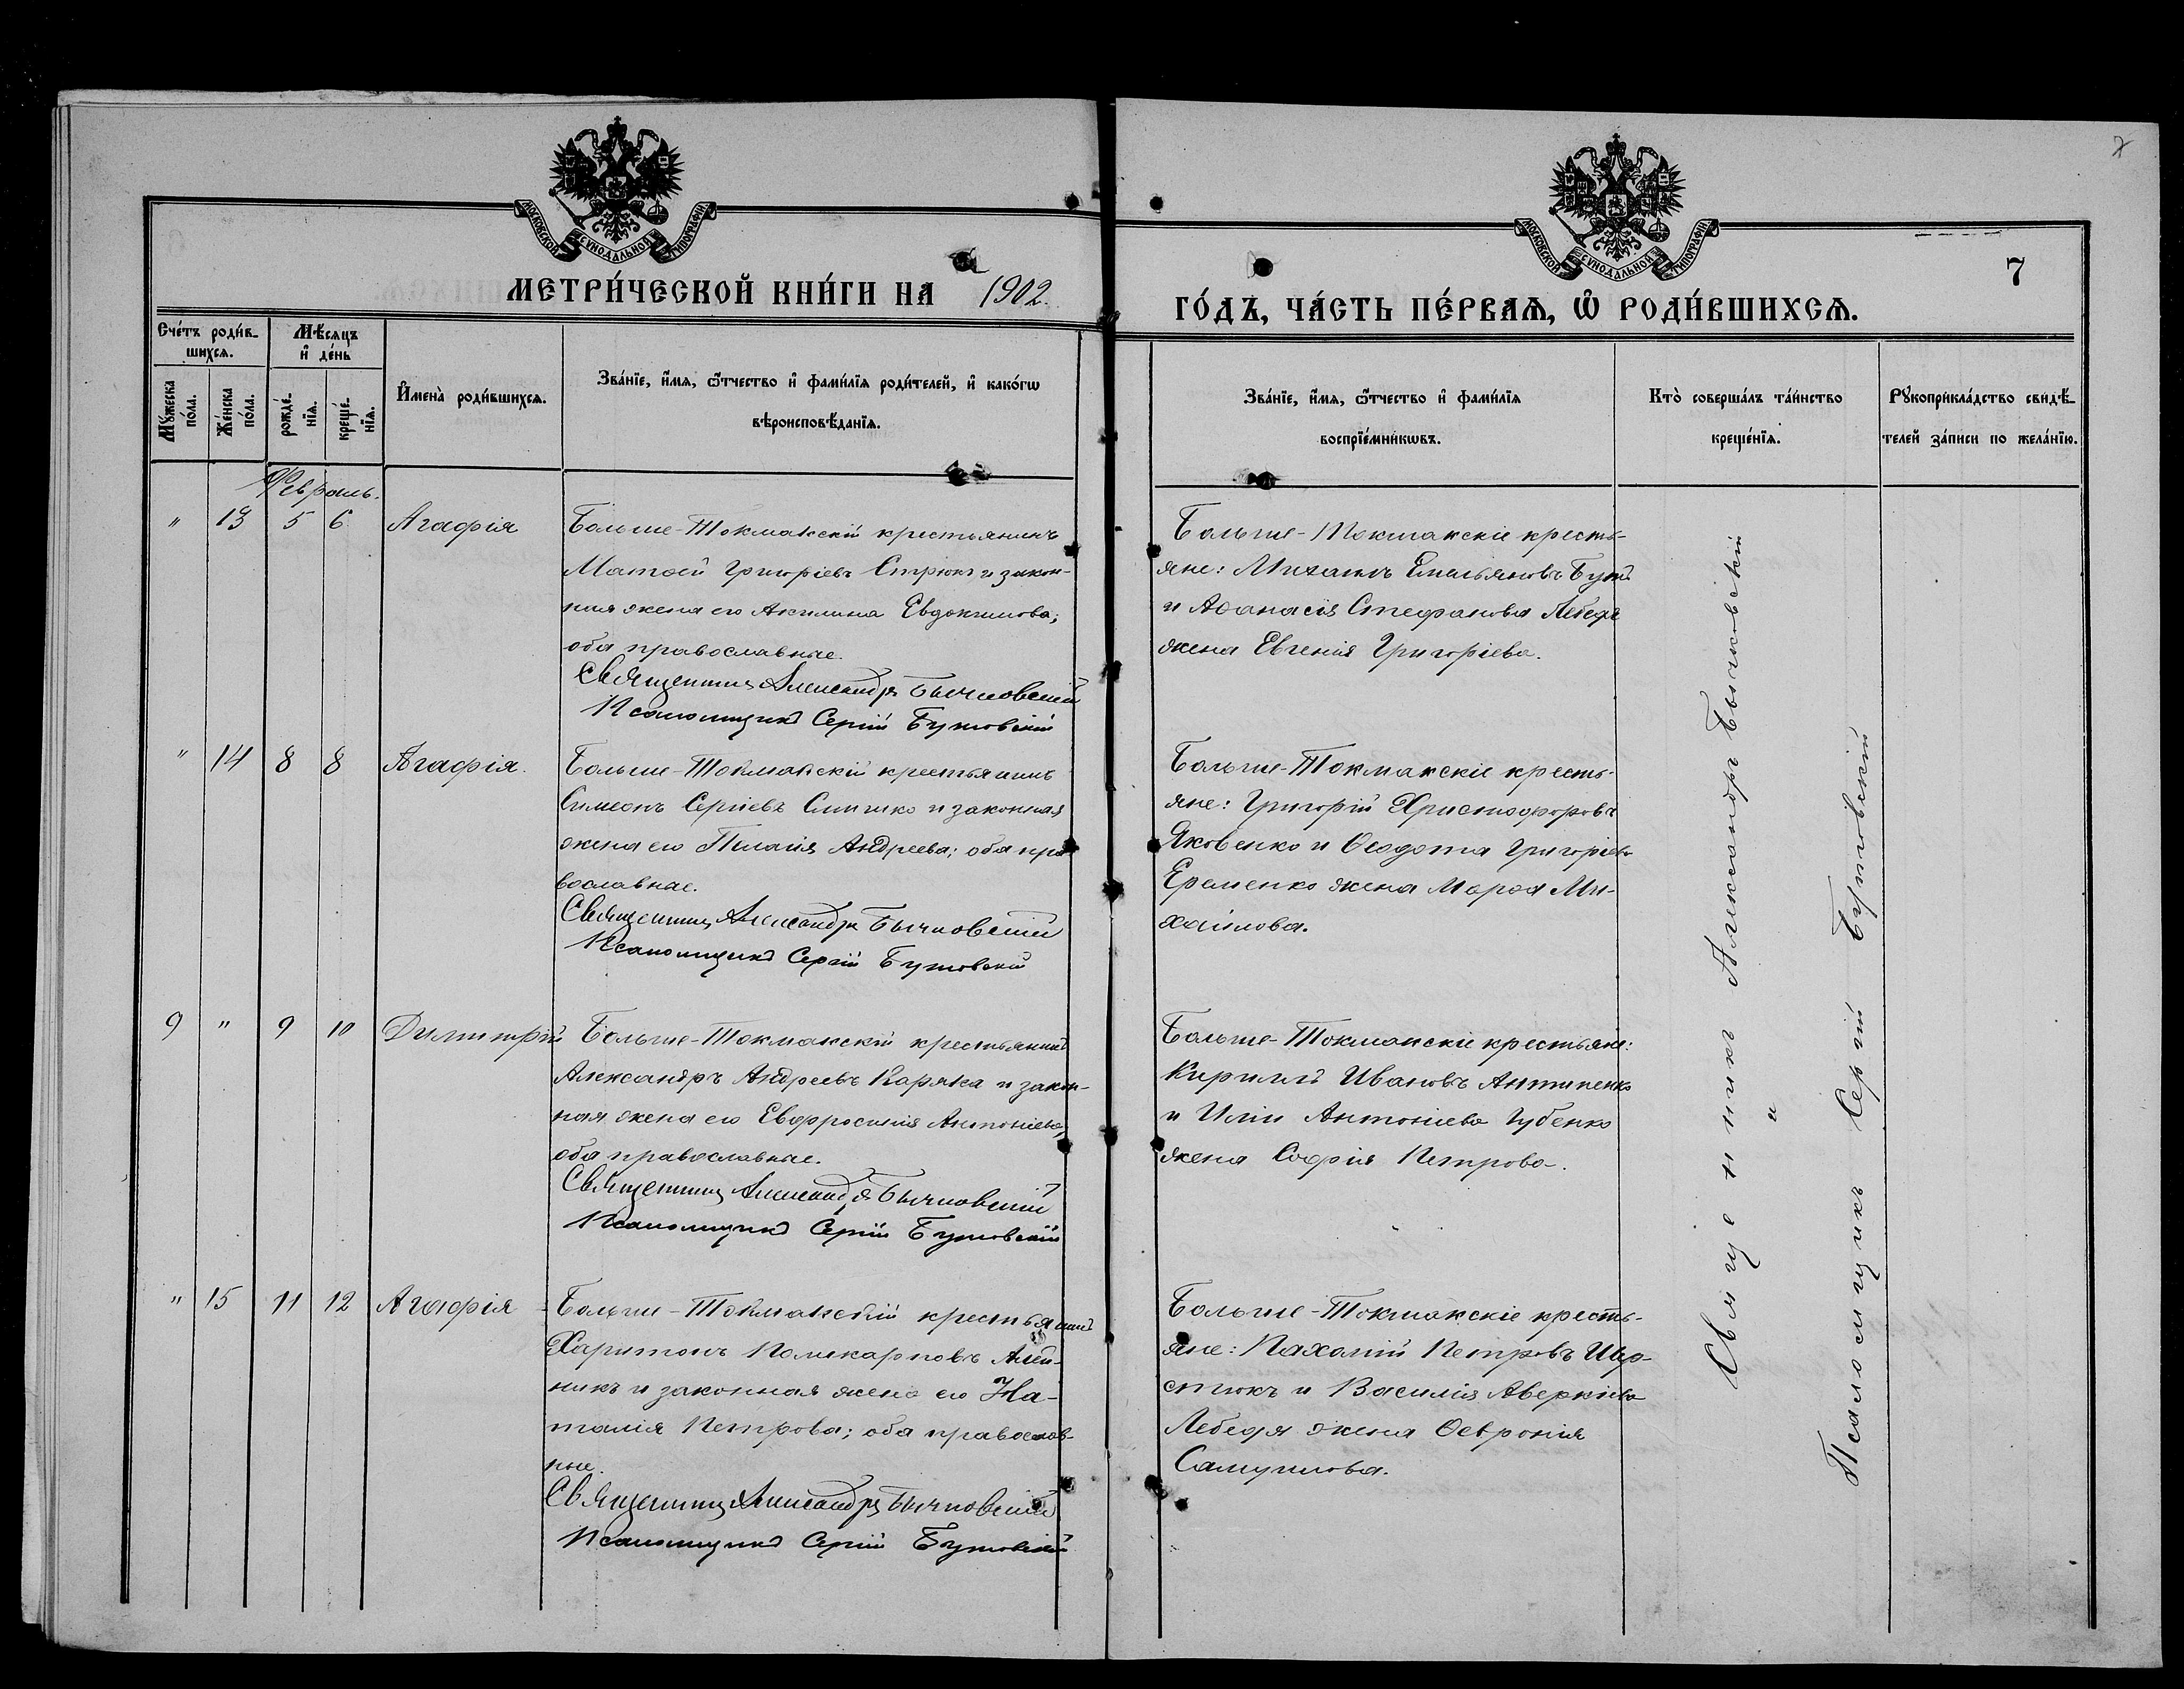 МОСКОВСКОЙ СУНОДАЛЬНОЙ ТИПОГРАФІИ
МОСКОВСКОЙ СУНОДАЛЬНОЙ ТИПОГРАФІИ
7
МЕТРИ́ЧЕСКОЙ КНИ́ГИ НА 1902.
ГО́ДЪ, ЧА́СТЬ ПЕ́РВАѦ, Ѡ҆ РОДИ́ВШИХСѦ.
7
Сче́тъ роди́в-
шихсѧ.
Мѣ́сѧцъ
и҆ де́нь
Мꙋ́жеска
по́ла.
Же́нска
по́ла.
рожде́-
нїѧ.
креще́-
нїѧ.
И҆мена̀ роди́вшихсѧ.
Зва́нїе, и҆́мѧ, ѻ҆́тчество и҆ фами́лїѧ роди́телей, и҆ како́гѡ
вѣроисповѣ́данїѧ.
Зва́нїе, и҆́мѧ, ѻ҆́тчество и҆ фами́лїѧ
воспрїе́мникѡвъ.
Кто̀ соверша́лъ та́инство
креще́нїѧ.
Рꙋкоприкла́дство свидѣ́-
телей за́писи по жела́нїю.
Февраль.
" 13 5 6 Агафія
Больше-Токмакскій крестьянинъ
Матѳей Григоріевъ Стрюкъ и закон-
ная жена его Акилина Евдокимова;
оба православные.
Священникъ Александръ Бычковскій
Псаломщикъ Сергій Бутовскій
Больше-Токмакскіе кресть-
яне: Михаилъ Емельяновъ
и Аѳанасія Стефанова Лебедя
жена Евгенія Григоріева.
" 14 8 8 Агафія.
Больше-Токмакскій крестьянинъ
Симеонъ Сергіевъ и законная
жена его Пелагія Андреева; оба пра-
вославные.
Священникъ Александръ Бычковскій
Псаломщикъ Сергій Бутовскій
Больше-Токмакскіе кресть-
яне: Григорій Христофоровъ
Яковенко и Ѳеодота Григоріева
Еременко жена Марѳа Ми-
хайлова.
9 " 9 10 Димитрій
Больше-Токмакскій крестьянинъ
Александръ Андреевъ Каряка и закон-
ная жена его Евфросинія Антоніева,
оба православные.
Священникъ Александръ Бычковскій
Псаломщикъ Сергій Бутовскій
Больше-Токмакскіе крестьяне:
Кириллъ Ивановъ Антипенко
и Иліи Антоніева Губенко
жена Софія Петрова.
" 15 11 12 Агафія
Больше-Токмакскій крестьянинъ
Харитонъ Поликарповъ Алей-
никъ и законная жена его На-
талія Петрова; оба православ-
ные.
Священникъ Александръ Бычковскій
Псаломщикъ Сергій Бутовскій
Больше-Токмакскіе кресть-
яне: Пахомій Петровъ Шер-
стюкъ и Василія Аверкіева
Лебедя жена Ѳевронія
Самуилова.
Священникъ Александръ Бычковскій
и
Псаломщикъ Сергій Бутовскій